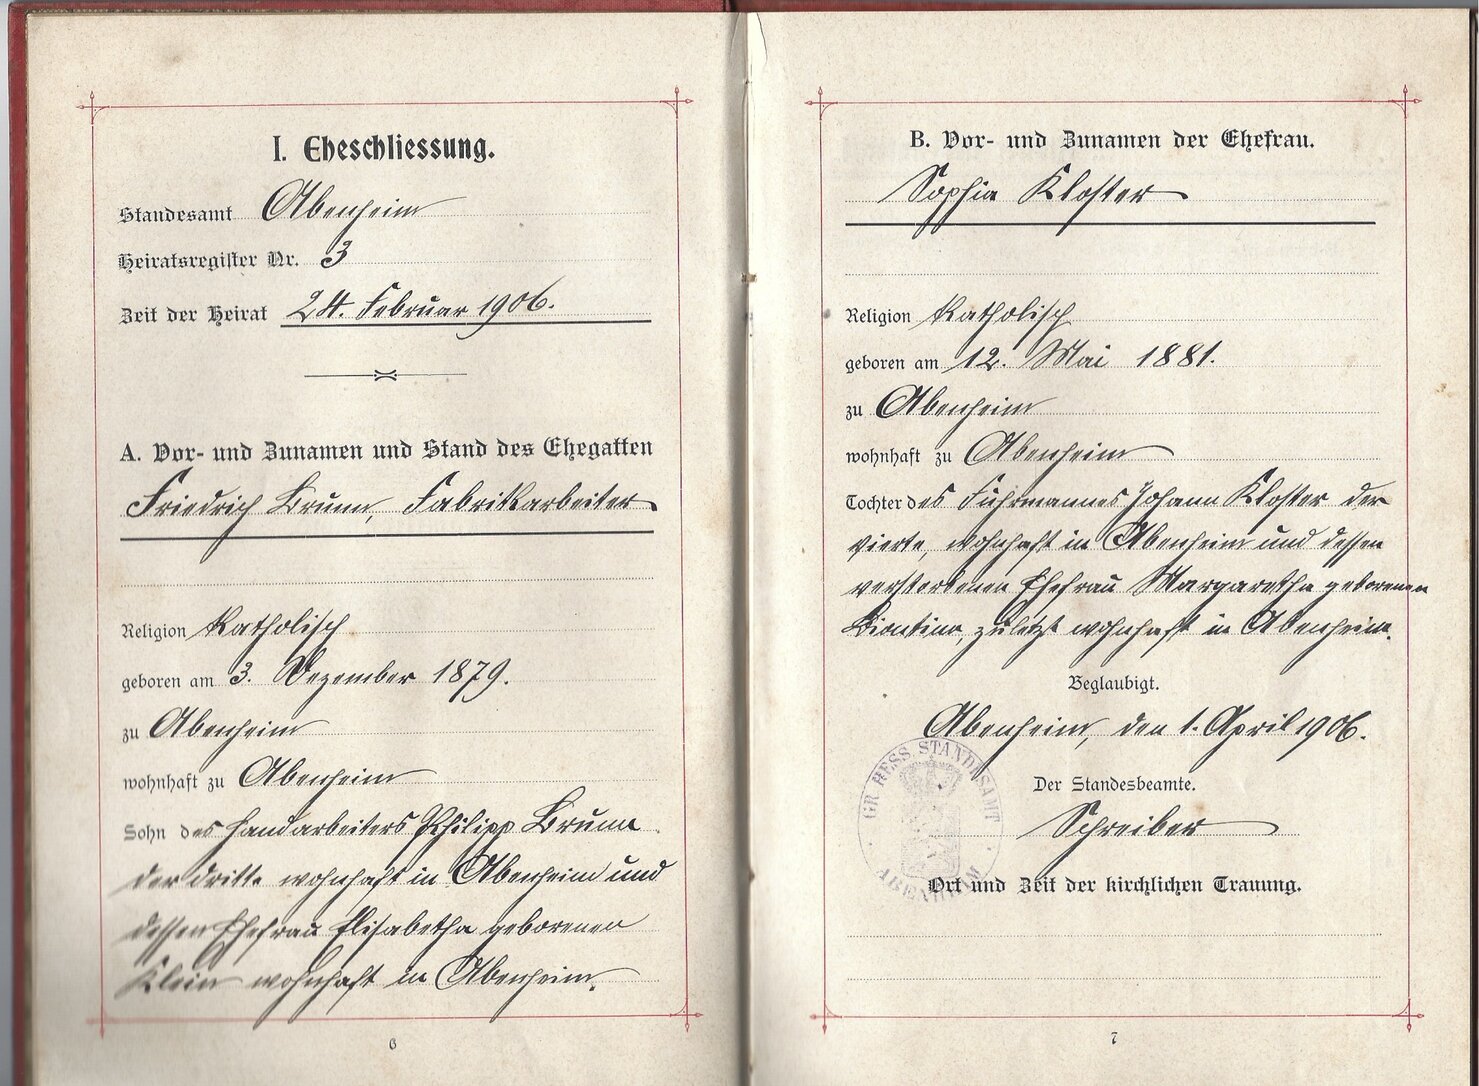 I. Eheschliessung.
Standesamt Abenheim
Heiratsregister Nr. 3
Zeit der Heirat 24. Februar 1906.
A. Vor- und Zunamen und Stand des Ehegatten
Friedrich Brunn, Fabrikarbeiter
Religion katholisch
geboren am 3. Dezember 1879.
zu Abenheim
wohnhaft zu Abenheim
Sohn des Handarbeiters Philipp Brunn
der dritte wohnhaft in Abenheim und
dessen Ehefrau Elisabetha geborenen
Klein wohnhaft in Abenheim.
6
B. Vor- und Zunamen der Ehefrau.
Sophia Kloster
Religion katholisch
geboren am 12. Mai 1881.
zu Abenheim
wohnhaft zu Abenheim
Tochter des Fuhrmannes Johann Kloster der
vierte, wohnhaft in Abenheim und dessen
verstorbenen Ehefrau Margaretha geborenen
zuletzt wohnhaft in Abenheim.
Beglaubigt.
Abenheim, den 1. April 1906.
GR HESS STANDESAMT
ABENHEIM
Der Standesbeamte.
Schreiber
Ort und Zeit der kirchlichen Trauung.
7